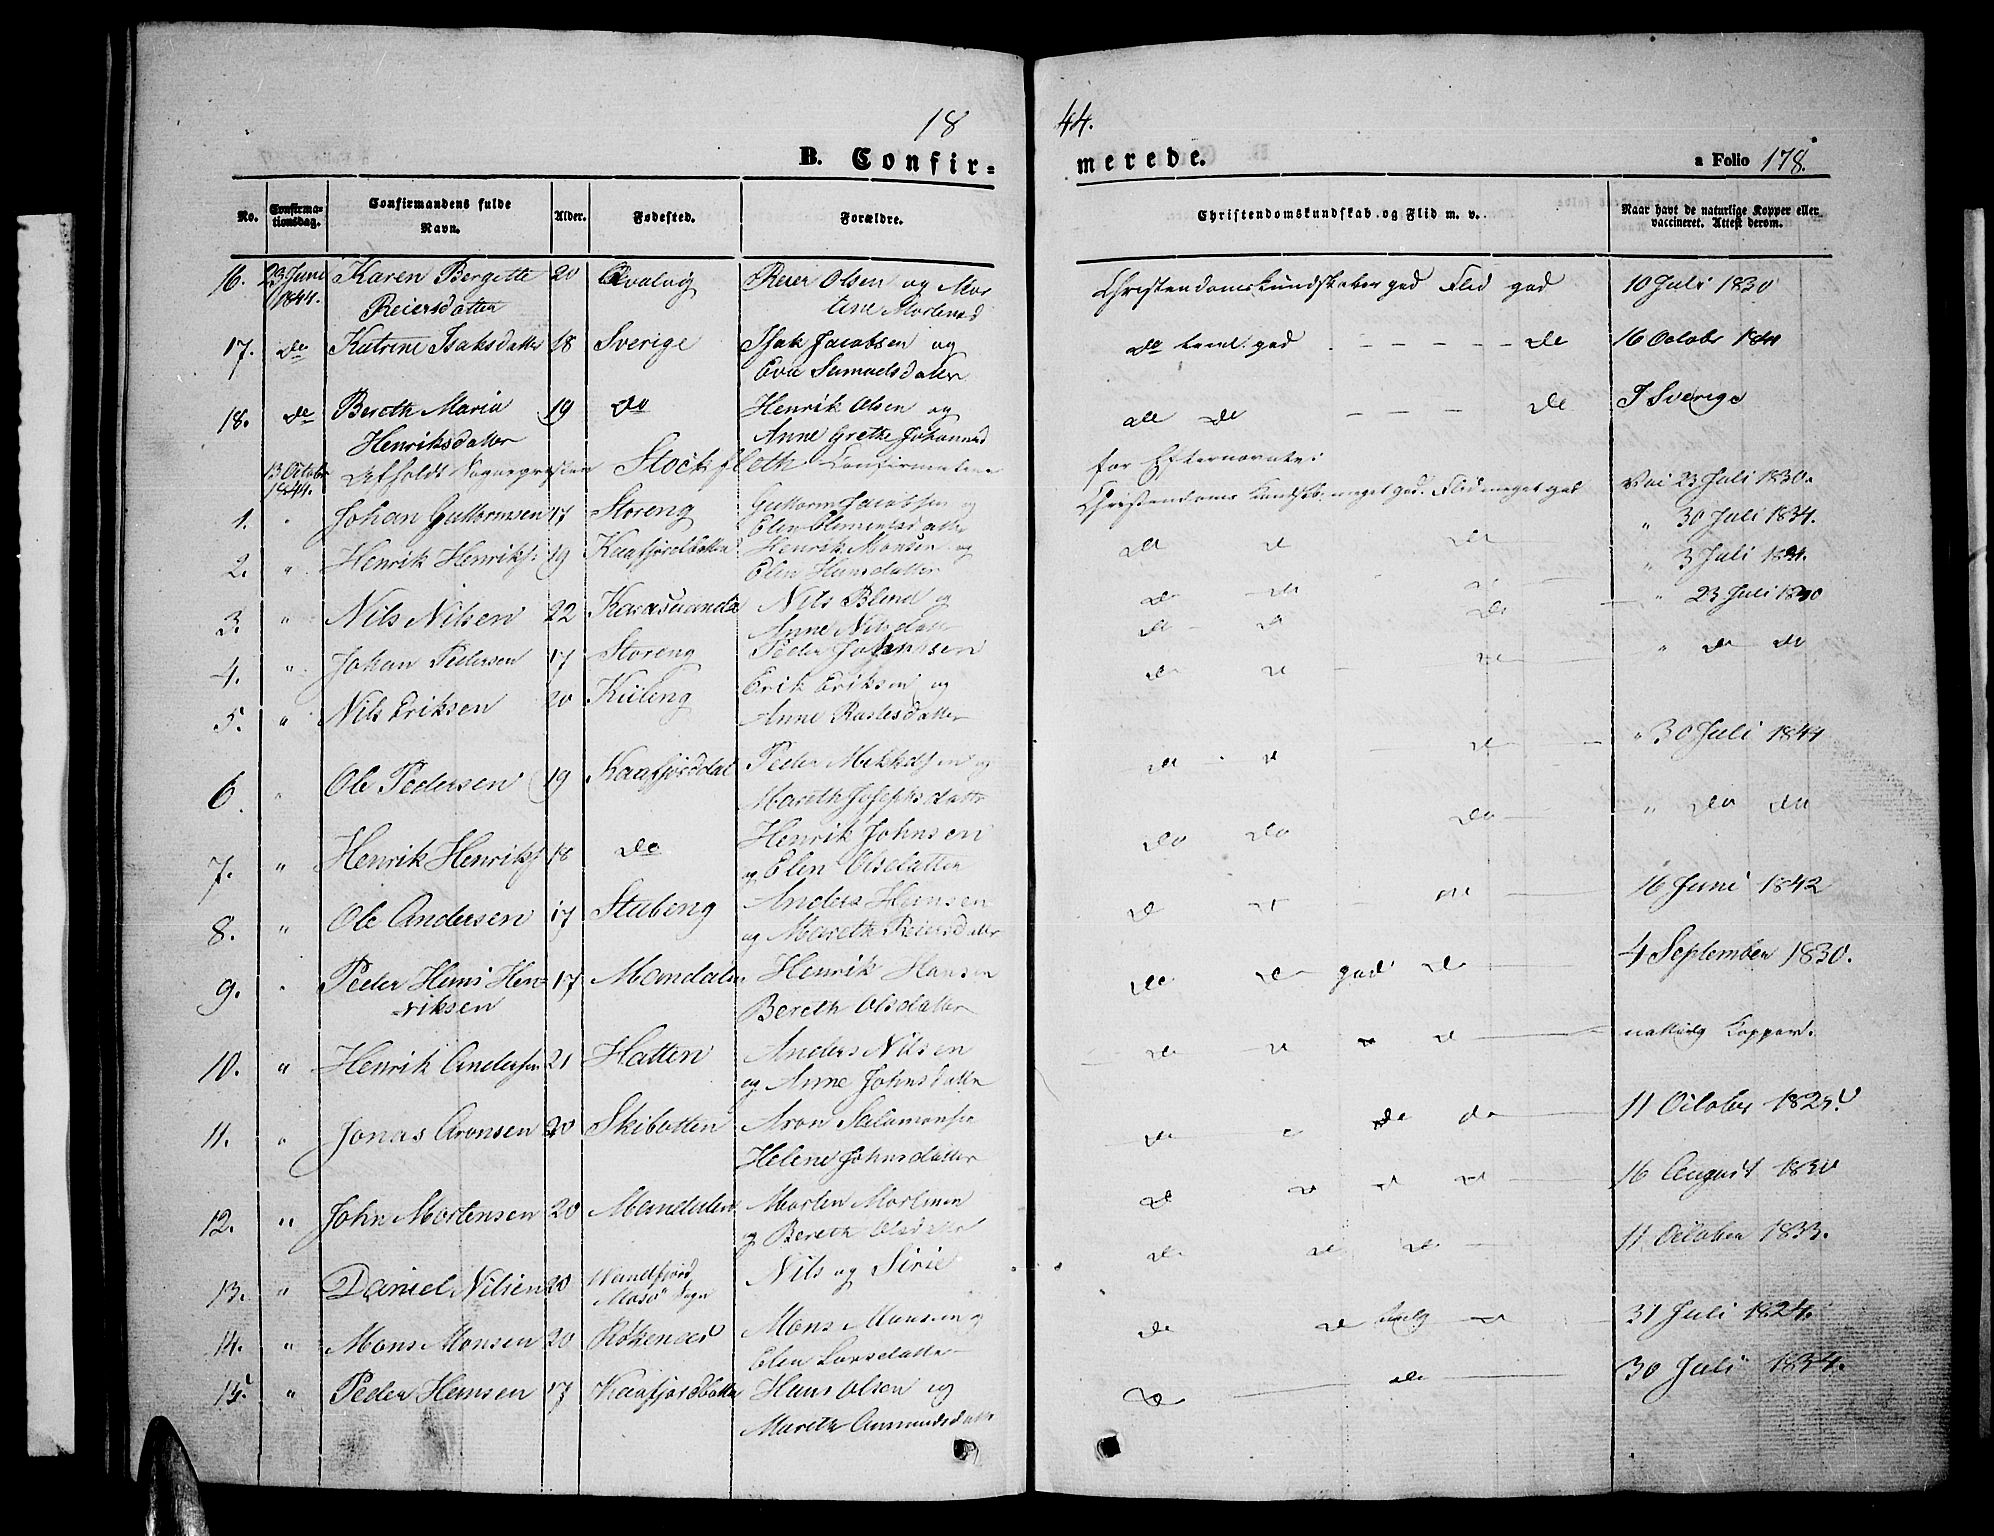 1844.
B. Confir=merede. a Folio 178.
No. Confirma-tionsdag. Confirmandens fulde Navn. Alder. Fødested. Forældre. Christendomskundskab og Flid m. v. Naar havt de naturlige Kopper eller vaccineret. Attest derom.
16. 23 Juni Karen Bergitte 20 Qvalvig Reier Olsen og Mor Christendomskundskaber god Flid god 10 Juli 1830
1844. Reiersdatter tine Mortensd
17. do Katrine Isaksdatter 18 Sverige Isak Jacobsen og do temel: god - - - - - do 16 Octobr
Eva Samuelsdatter
18. do Bereth Maria 19 do Henrik Olsen og do do - - - - do I Sverige
Henriksdatter Anne Grethe Johannesd
13 Octobr Stockfleth Confirmatione for Efternævnte:
1844.
1. " Johan Guttormsen 17 Storeng Guttorm Jacobsen og Christendoms Kundsk. meget god. Flid meget god Vac 23 Juli 1830.
Elen Clemetsdatter
2. " Henrik Henriks: 19 Kaafjordbotten Henrik Monsen og do do do " 30 Juli 1834.
Elen Hansdatter
3. " Nils Nilsen 22 Karasuando Nils Blind og do do " 3 Juli
Anne Nilsdatter
4. " Johan Pedersen 17 Storeng Peder Johannsen do do do " 23 Juli
5. " Nils Eriksen 20 Kiileng Erik Eriksen og do do do " do do
Anne Rastesdatter
6. " Ole Pedersen 19 Kaafjorddal Peder Mikkelsen og do do do " 30 Juli
Mareth Josephsdatter
7. " Henrik Henriks 18 do Henrik Johnsen do do do " do do
og Elen Olsdatter
8. " Ole Andersen 17 Stubeng Anders Hansen do do do 16 Juni 1842
og Mareth Reiersdatter
9. " Peder Hans Hen= 17 Mandalen Henrik Hansen do do god do 4 September 1830.
=riksen Bereth Olsdatter
10. " Henrik Andersen 21 Hatten Anders Nilsen do do do do naturlig Kopper.
og Anne Johnsdatter
11. " Jonas Aronsen 20 Skibotten Aron Salamonsen do do do 11 October
Helene Johnsdatter
12. " John Mortensen 20 Mandalen Morten Mortensen do do do do 16 August
og Bereth Olsdatter
13. " Daniel Nilsen 20 Nils og Sirie do do do 11 October 1833.
Masø" Sogn
14. " Mons Monsen 20 Røkenæs Mons Monsen og do do do 31 Juli 1824.
Elen Larsdatter
15. " Peder Hansen 17 Kaafjordbotten Hans Olsen og do do 30 Juli 1834.
Mareth Amundsdatter